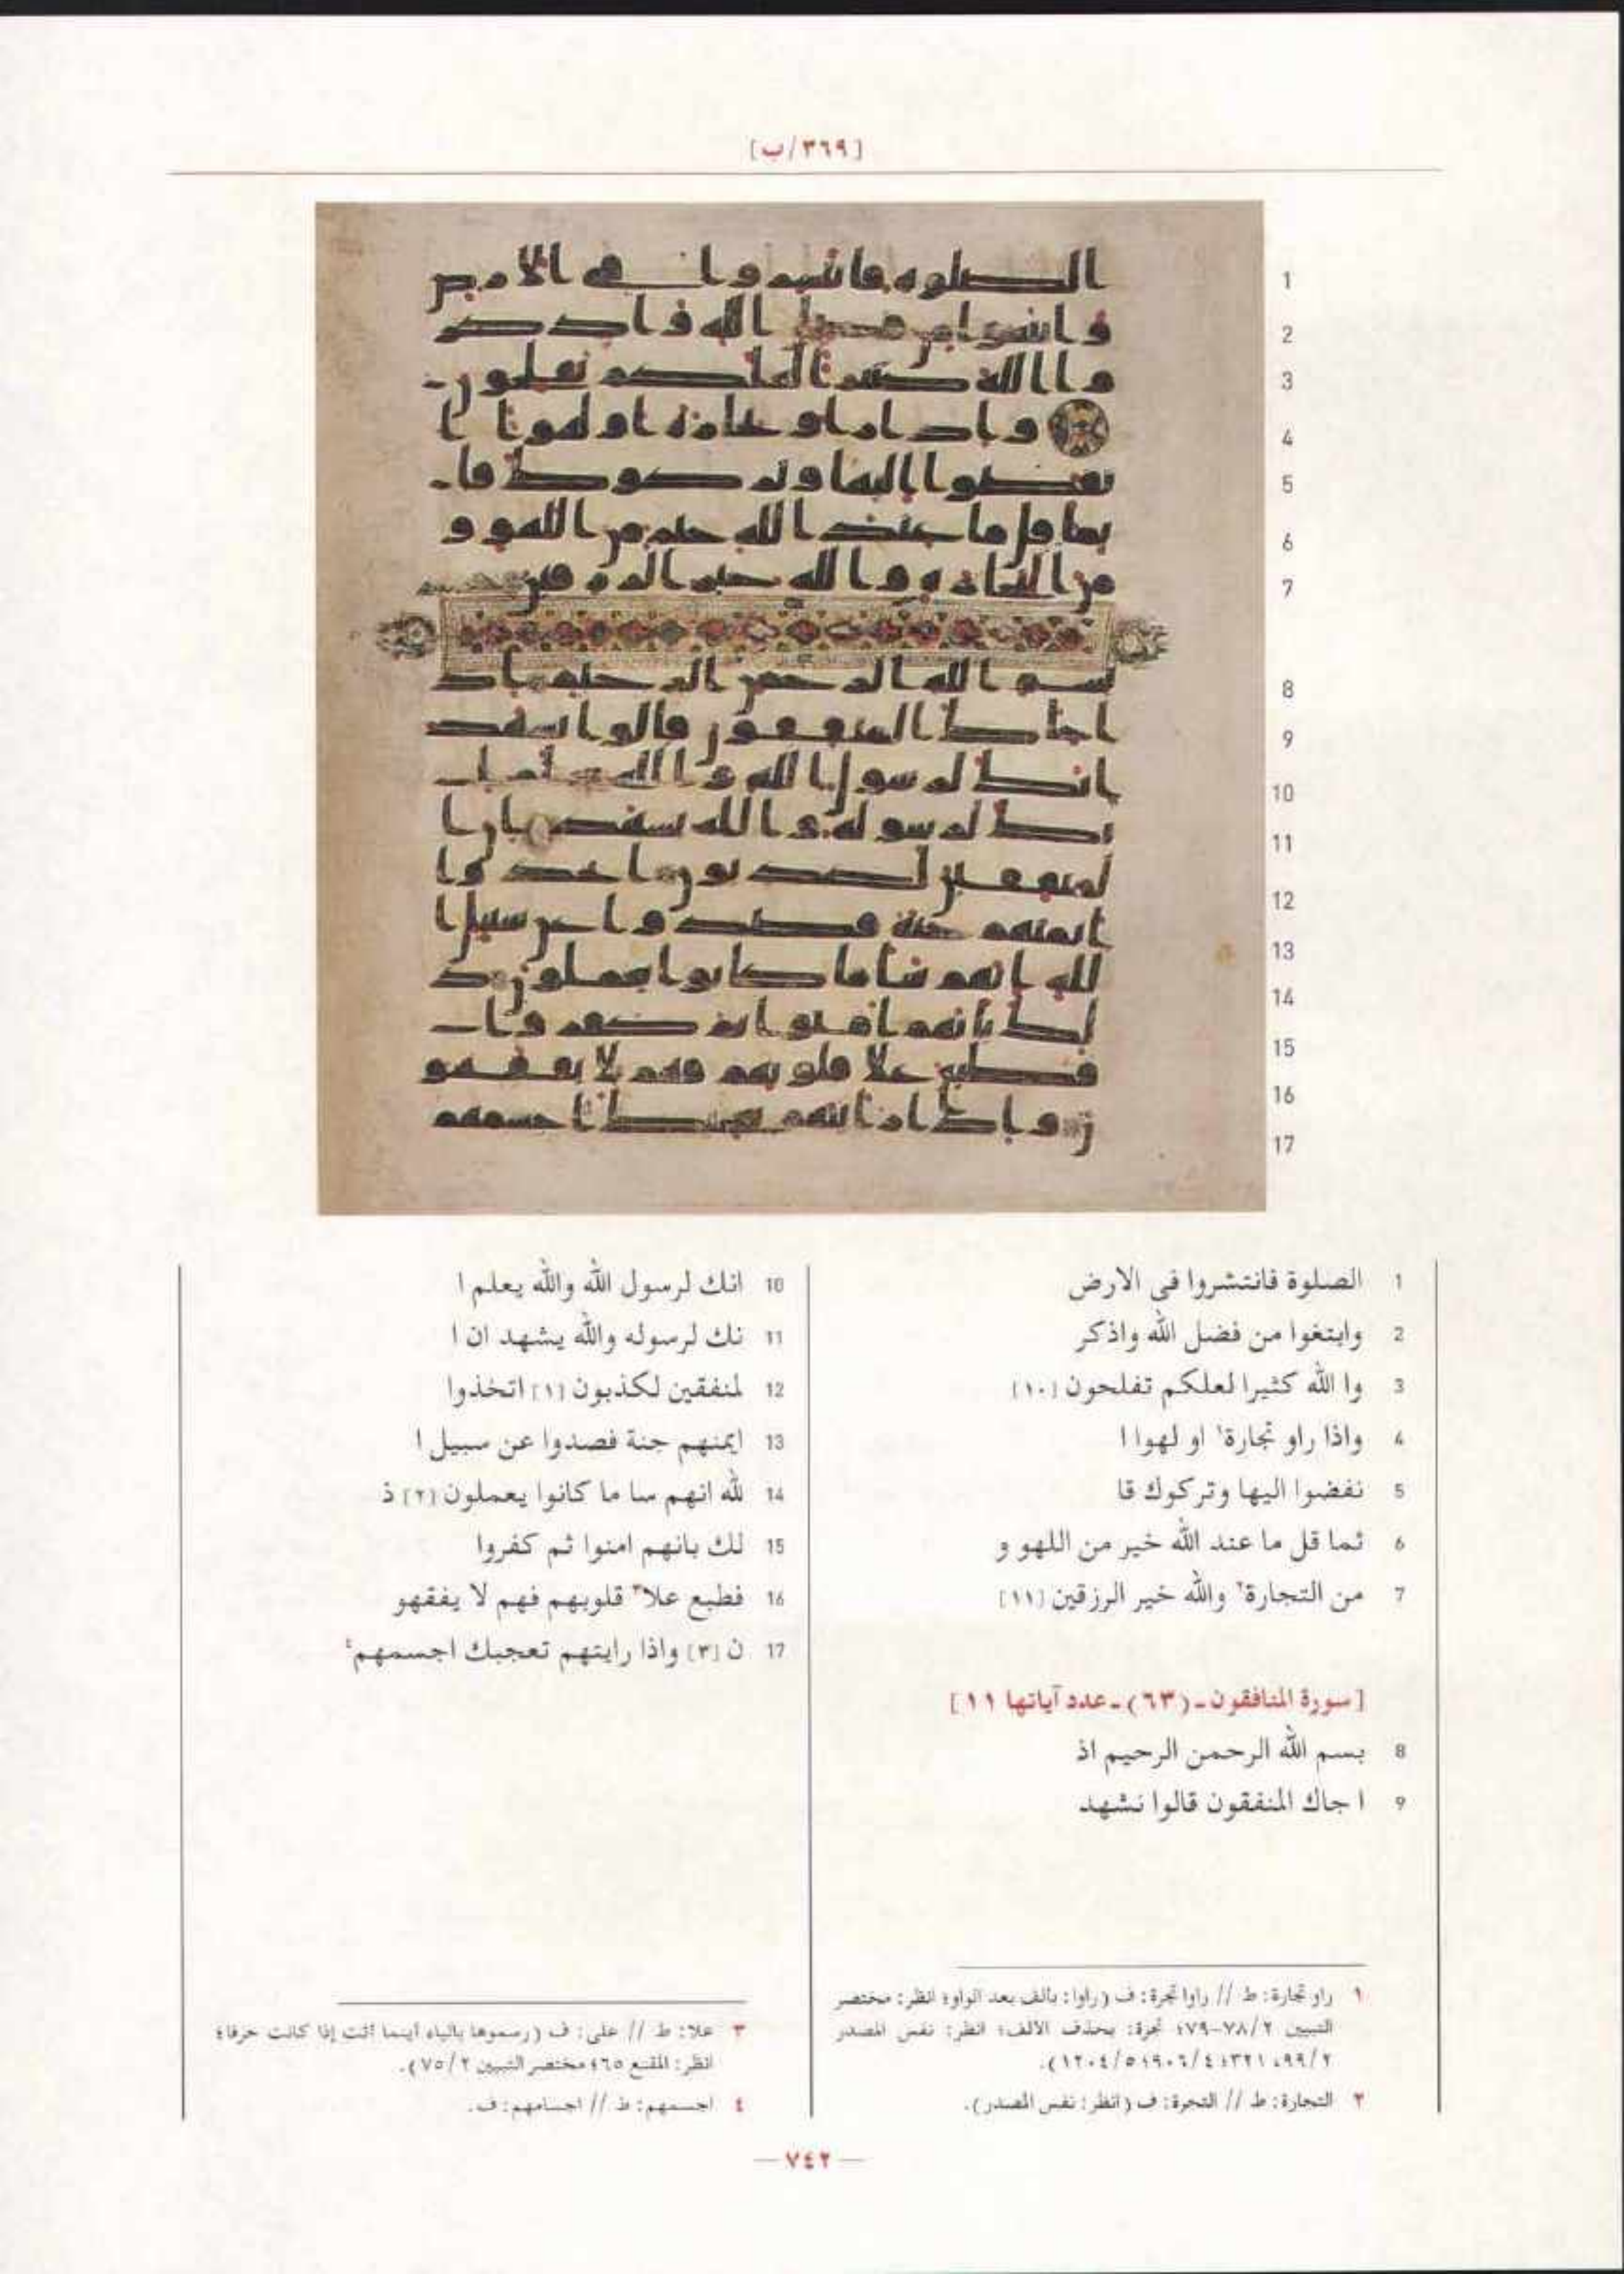 [٣٦٩/ب]
1 الصلوة فانتشروا فى الارض
2 وابتغوا من فضل الله واذكر
3 وا الله كثيرا لعلكم تفلحون [١٠]
4 واذا راو تجارة١ او لهوا ا
5 نفضوا اليها وتركوك قا
6 ئما قل ما عند الله خير من اللهو و
7 من التجارة٢ والله خير الرزقين [١١]
[سورة المنافقون ـ (٦٣) ـ عدد آياتها ١١]
8 بسم الله الرحمن الرحيم اذ
9 ا جاك المنفقون قالوا نشهد
10 انك لرسول الله والله يعلم ا
11 نك لرسوله والله يشهد ان ا
12 لمنفقين لكذبون [١] اتخذوا
13 ايمنهم جنة فصدوا عن سبيل ا
14 لله انهم سا ما كانوا يعملون [٢] ذ
15 لك بانهم امنوا ثم كفروا
16 فطبع علا٣ قلوبهم فهم لا يفقهو
17 ن [٣] واذا رايتهم تعجبك اجسمهم٤
١ راو تجارة: ط // راوا تجرة: ف (راوا: بألف بعد الواو؛ انظر: مختصر
التبيين ٧٨/٢-٧٩؛ تجرة: بحذف الالف؛ انظر: نفس المصدر
٩٩/٢، ٣٢١؛ ٩٠٦/٤؛ ١٢٠٤/٥).
٢ التجارة: ط // التجرة: ف (انظر: نفس المصدر).
٣ علا: ط // على: ف (رسموها بالياء أينما أتت إذا كانت حرفا؛
انظر: المقنع ٦٥؛ مختصر التبيين ٧٥/٢).
٤ اجسمهم: ط // اجسامهم: ف.
— ٧٤٢ —